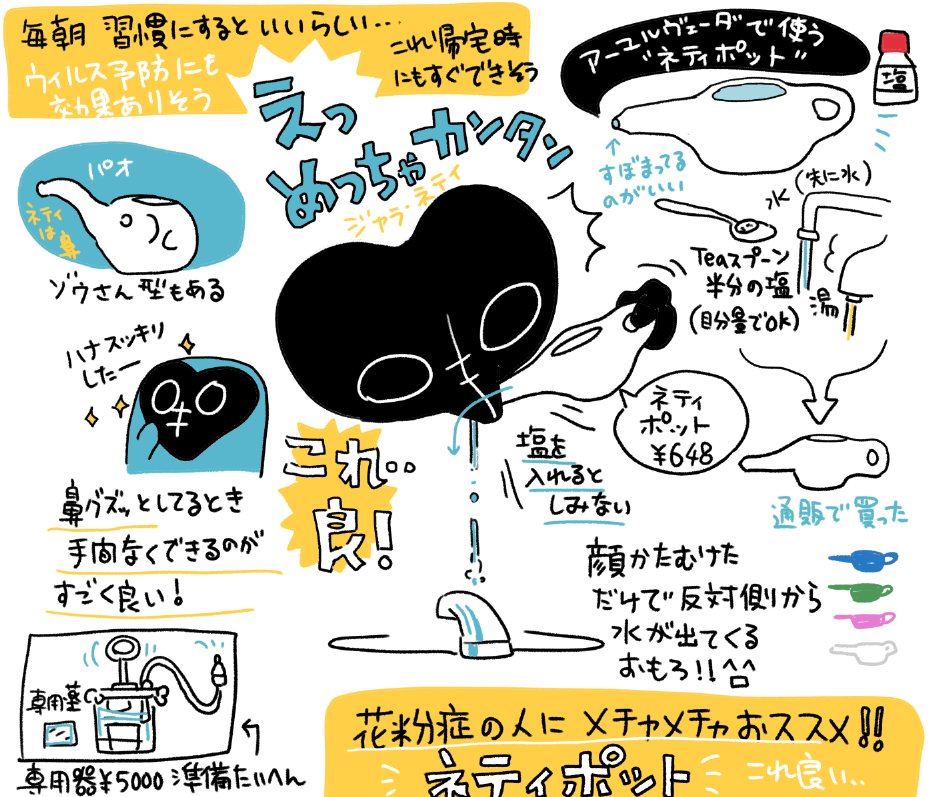 毎朝 習慣にするといいらしい…
ウィルス予防にも
効果ありそう
これ帰宅時
にもすぐできそう
えっ
めっちゃカンタン
ジャラ・ネティ
アーユルヴェーダで使う
"ネティポット"
塩
↑
すぼまってる
のがいい
水 (先に水)
Teaスプーン
半分の塩
(目分量でOK)
湯
パオ
ネティ
は鼻
ゾウさん型もある
ハナスッキリ
したー
ネティ
ポット
¥648
塩を
入れると
しみない
通販で買った
これ‥
良!
鼻グズッとしてるとき
手間なくできるのが
すごく良い!
顔かたむけた
だけで反対側から
水が出てくる
おもろ!!^□^
専用薬
専用器¥5000 準備たいへん
花粉症の人にメチャメチャおススメ!!
ネティポット
これ良い‥